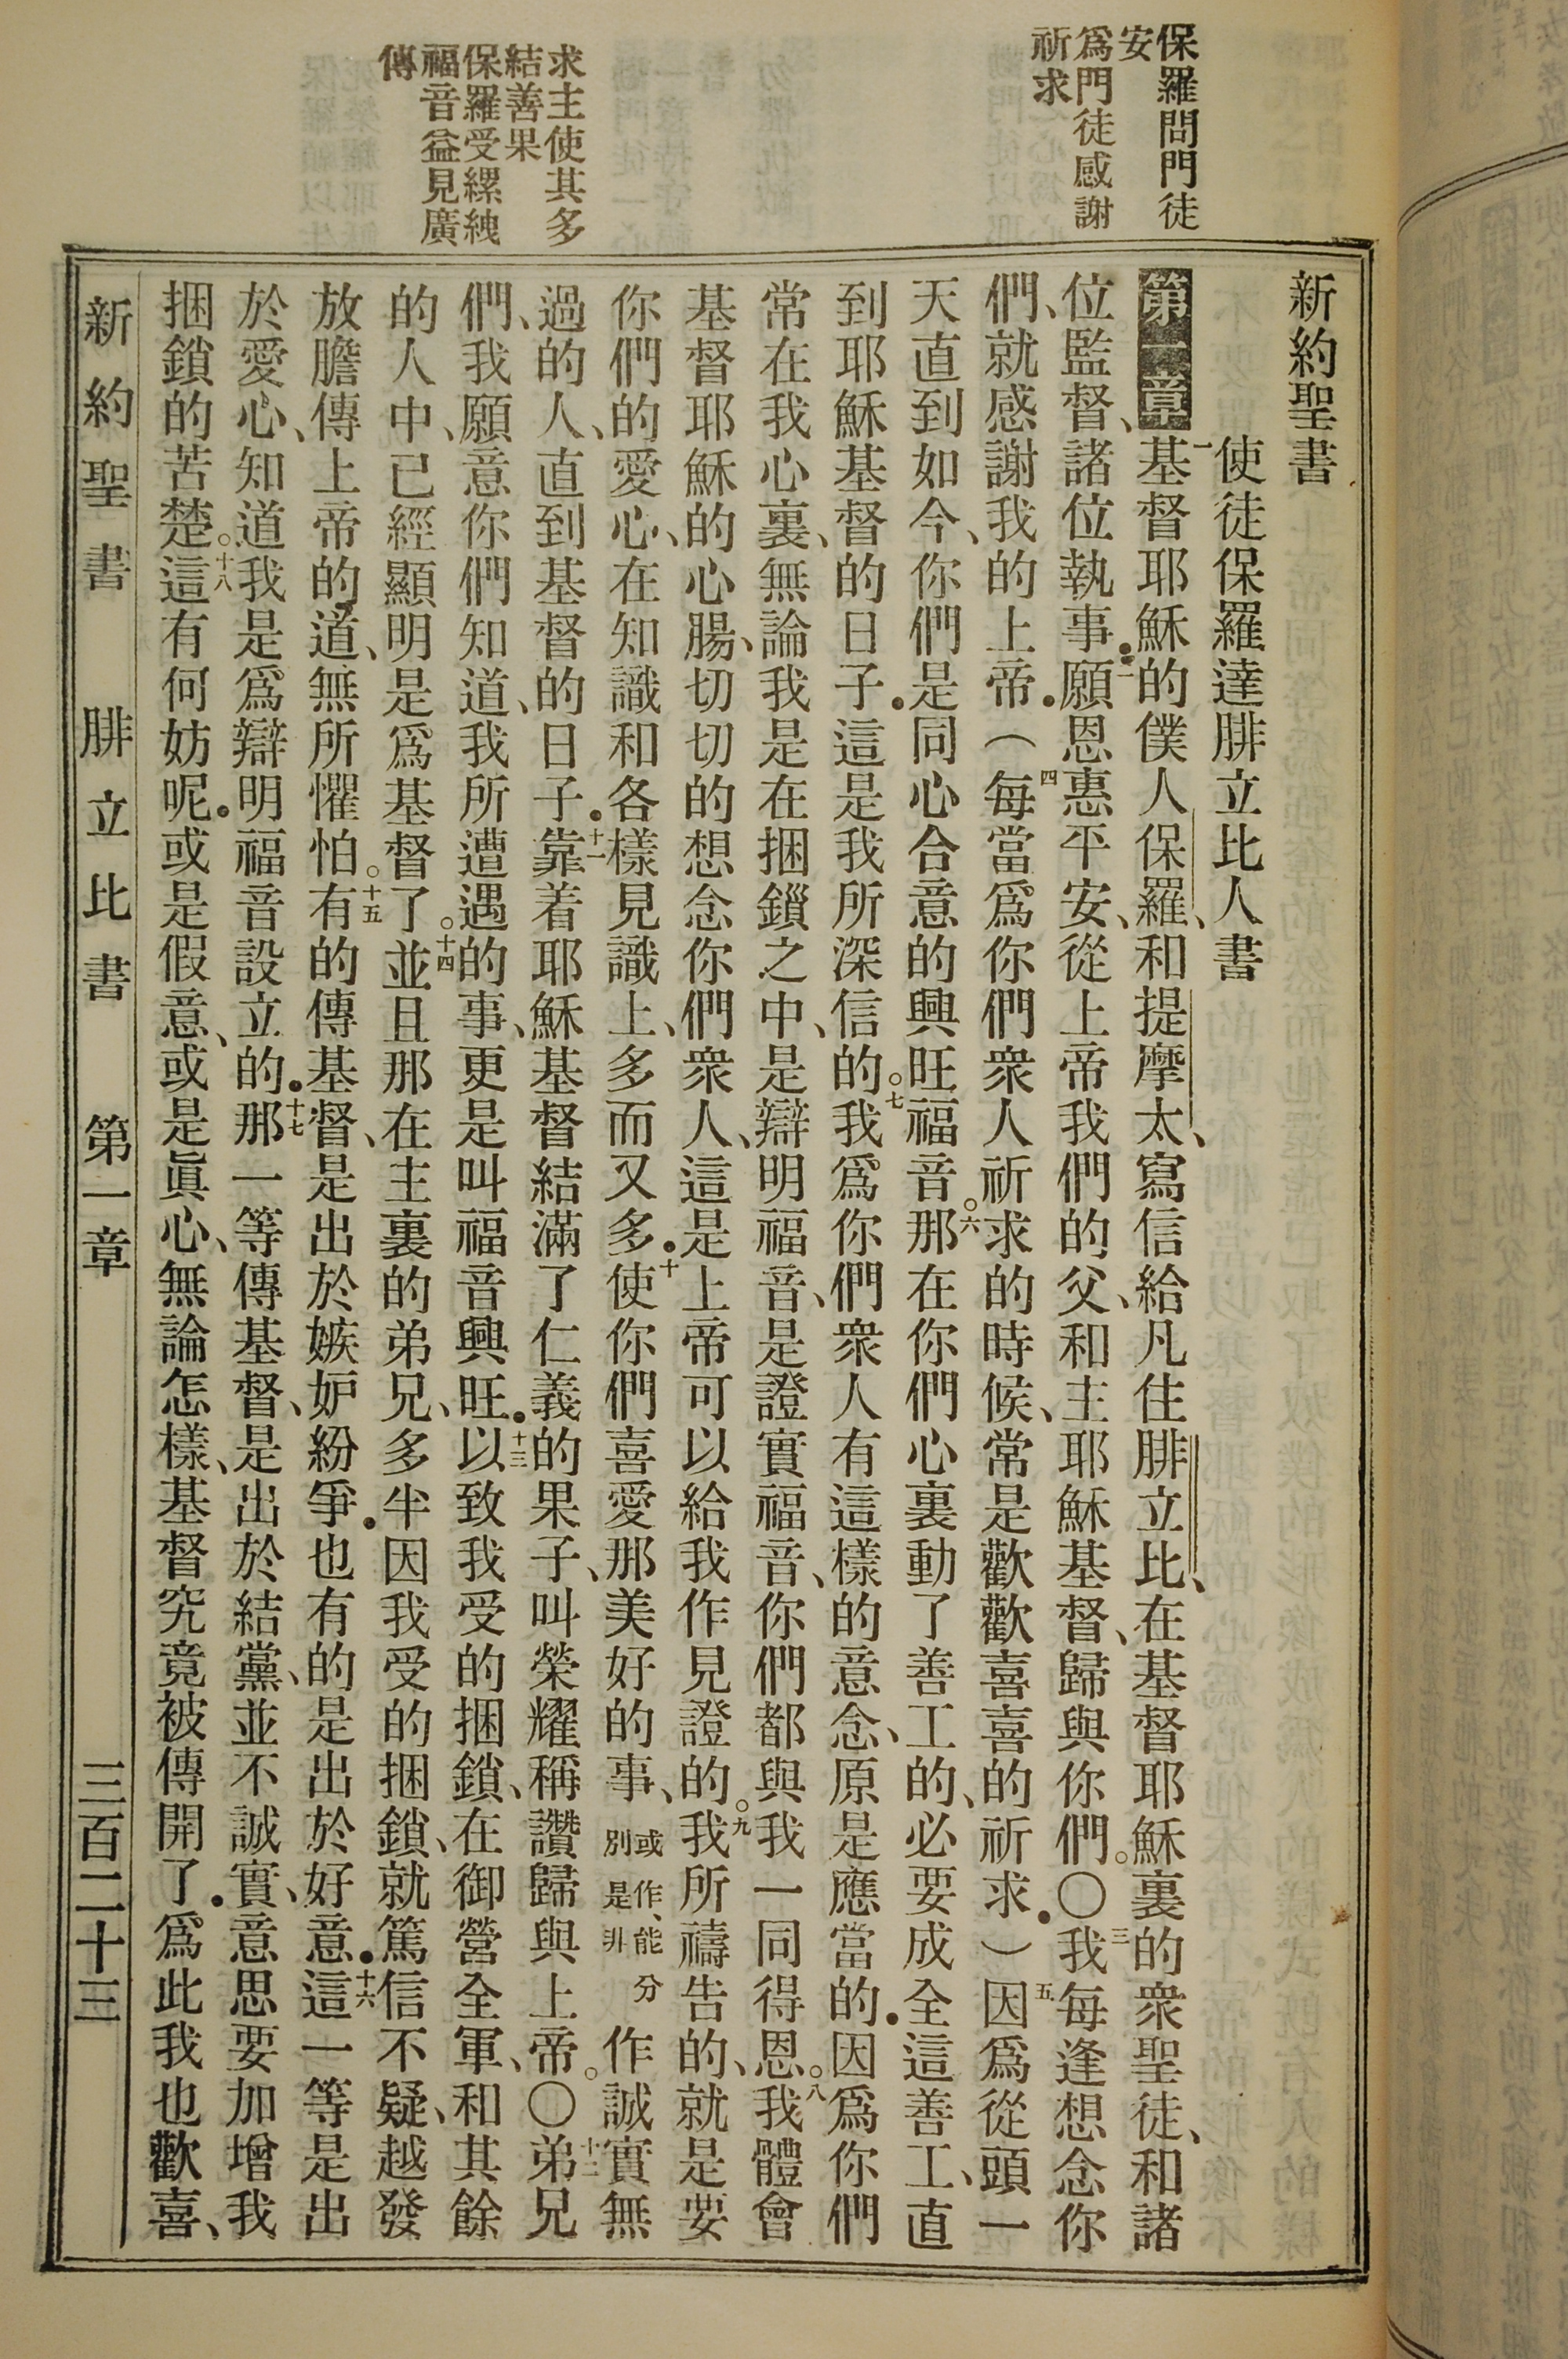 保羅問門徒
安
爲門徒感謝
祈求
求主使其多
結善果
保羅受縲絏
福音益見廣
傳
新約聖書
使徒保羅達腓立比人書
第一章 一基督耶穌的僕人保羅、和提摩太、寫信給凡住腓立比、在基督耶穌裏的衆聖徒、和諸
位監督、諸位執事•二願恩惠平安、從上帝我們的父、和主耶穌基督、歸與你們。○三我每逢想念你
們、就感謝我的上帝•（四每當爲你們衆人祈求的時候、常是歡歡喜喜的祈求•）五因爲從頭一
天直到如今、你們是同心合意的興旺福音。六那在你們心裏動了善工的、必要成全這善工、直
到耶穌基督的日子•這是我所深信的。七我爲你們衆人有這樣的意念、原是應當的•因爲你們
常在我心裏、無論我是在捆鎖之中、是辯明福音、是證實福音、你們都與我一同得恩。八我體會
基督耶穌的心腸、切切的想念你們衆人、這是上帝可以給我作見證的。九我所禱告的、就是要
你們的愛心、在知識和各樣見識上、多而又多•十使你們喜愛那美好的事、或作、能分別是非作誠實無
過的人、直到基督的日子•十一靠着耶穌基督結滿了仁義的果子、叫榮耀稱讚歸與上帝。○十二弟兄
們、我願意你們知道、我所遭遇的事、更是叫福音興旺•十三以致我受的捆鎖、在御營全軍、和其餘
的人中、已經顯明是爲基督了。十四並且那在主裏的弟兄、多半因我受的捆鎖、就篤信不疑、越發
放膽傳上帝的道、無所懼怕。十五有的傳基督、是出於嫉妒紛爭•也有的是出於好意•十六這一等是出
於愛心、知道我是爲辯明福音設立的•十七那一等傳基督、是出於結黨、並不誠實、意思要加增我
捆鎖的苦楚。十八這有何妨呢•或是假意、或是眞心、無論怎樣、基督究竟被傳開了•爲此我也歡喜、
新約聖書 腓立比書 第一章 三百二十三